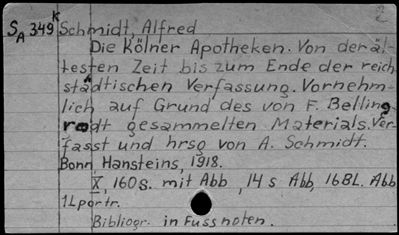 2
S_A 349 K Schmidt, Alfred
Die Kölner Apotheken. Von der äl-
testen Zeit bis zum Ende der reich
städtischen Verfassung. Vornehm-
lich auf Grund des von F. Belling
rodt gesammelten Materials. Ver-
fasst und hrsg von A. Schmidt.
Bonn, Hansteins, 1918.
X, 160 S. mit Abb, 14 s Abb, 168L. Abb
1L portr.
Bibliogr. in Fussnoten.